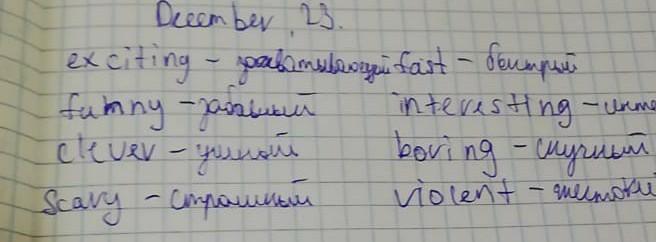 December, 23.
exciting - захватывающий fast - быстрый
funny - забавный interesting - инте
clever - умный boring - скучный
scary - страшный violent - жестоки